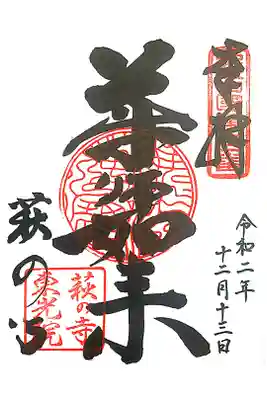 奉拝
令和二年
十二月十三日
如来
萩の寺
萩の寺
東光院